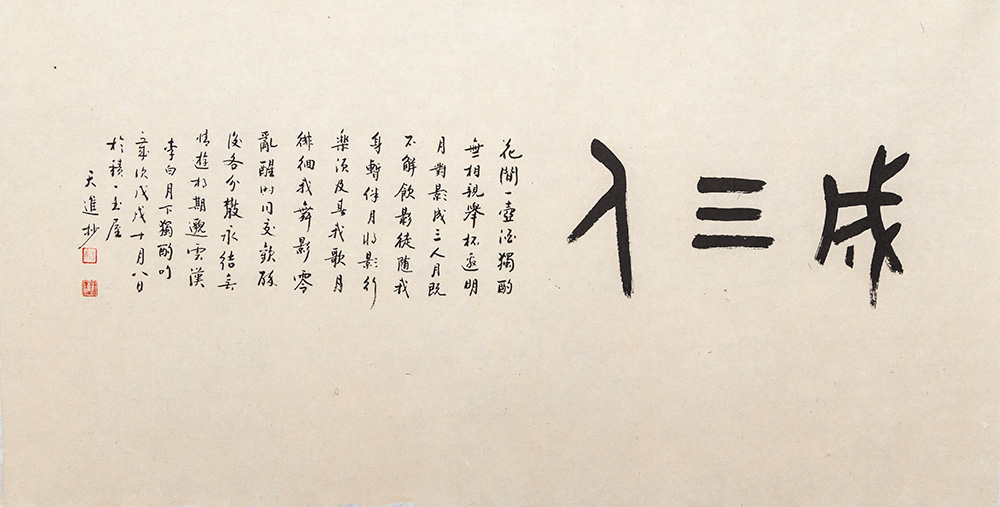 成三人
花間一壺酒獨酌
無相親舉杯邀明
月對影成三人月既
不解飲影徒隨我
身暫伴月將影行
樂須及春我歌月
徘徊我舞影零
亂醒時同交歡醉
後各分散永結無
情遊相期邈雲漢
李白月下獨酌句
歲次戊戌十月八日
於積玉屋
天進抄